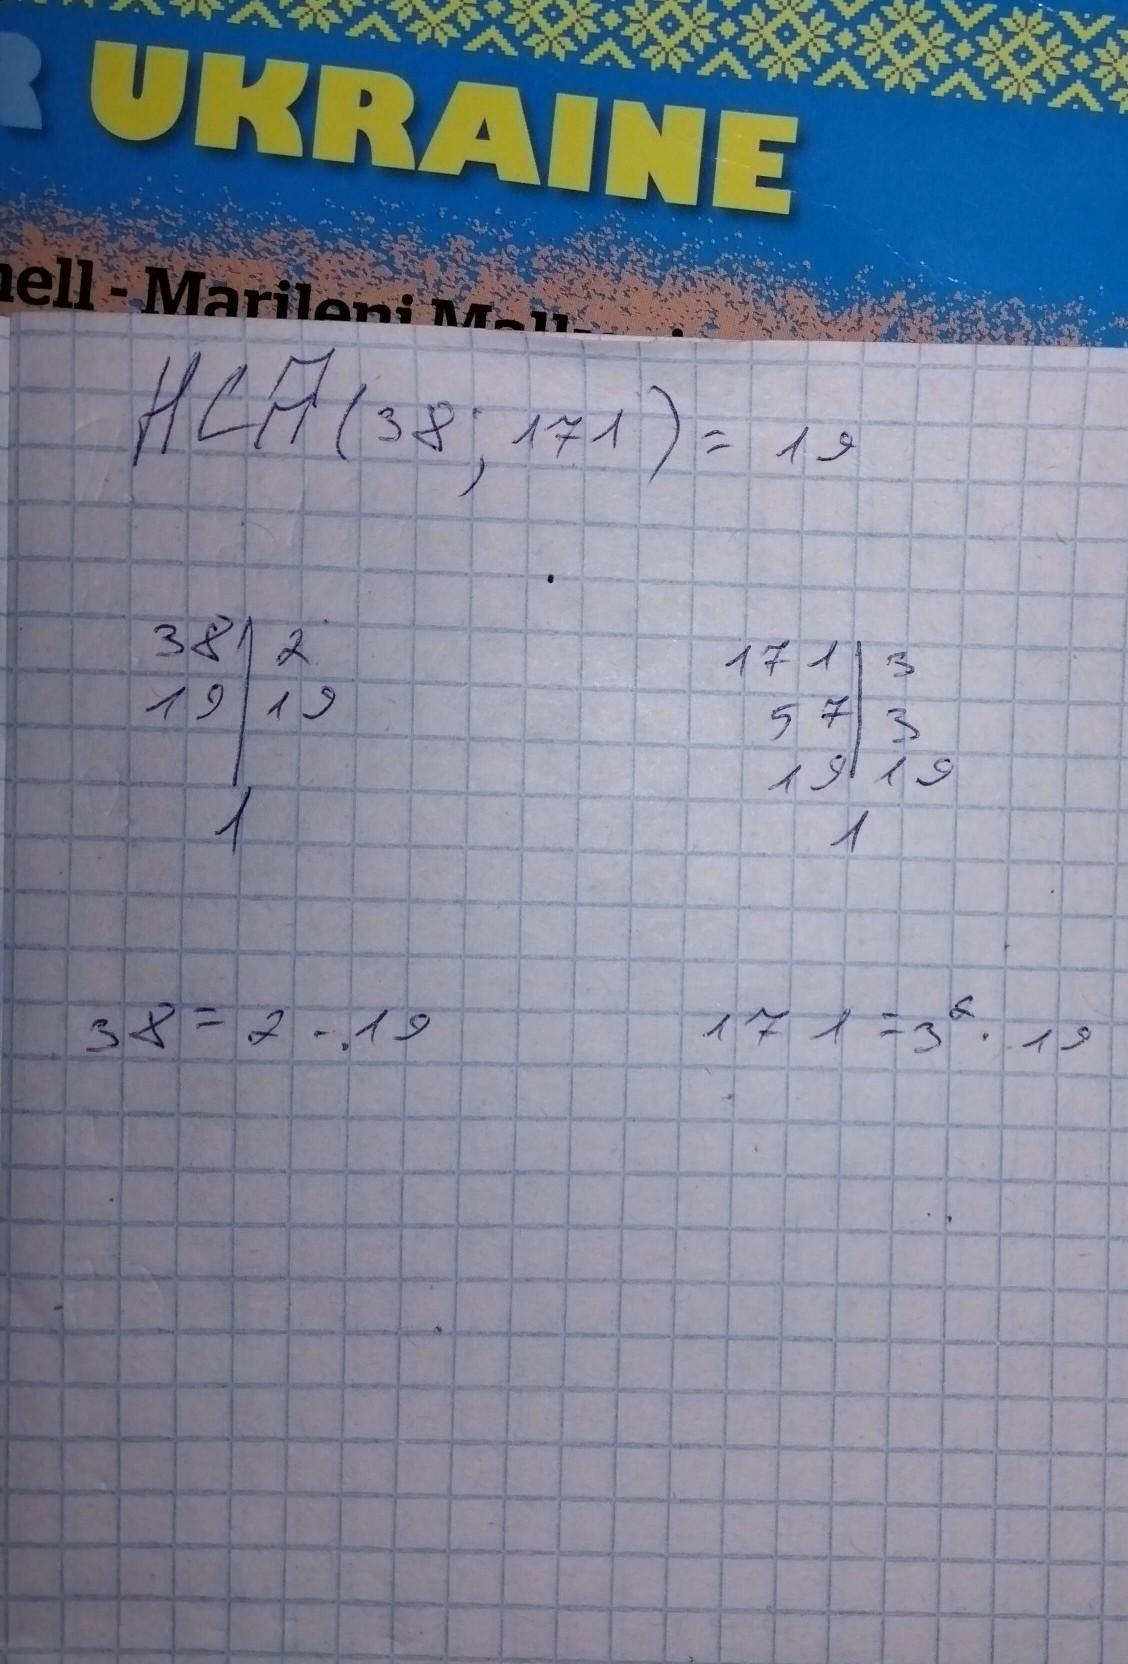 UKRAINE
nell - Marileni Mal
НСД(38; 171) = 19
38 | 2
19 | 19
1
171 | 3
57 | 3
19 | 19
1
38 = 2 · 19
171 = 3² · 19